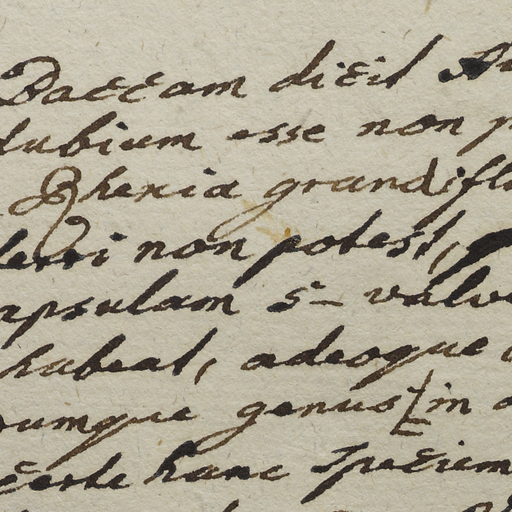 Baccam dicit Au
dubium esse non p
Rhexia grandiflo
ferri non potest,
apsulam 5- valv
habeat, adeoque
cumque genus in
certe hanc speciem